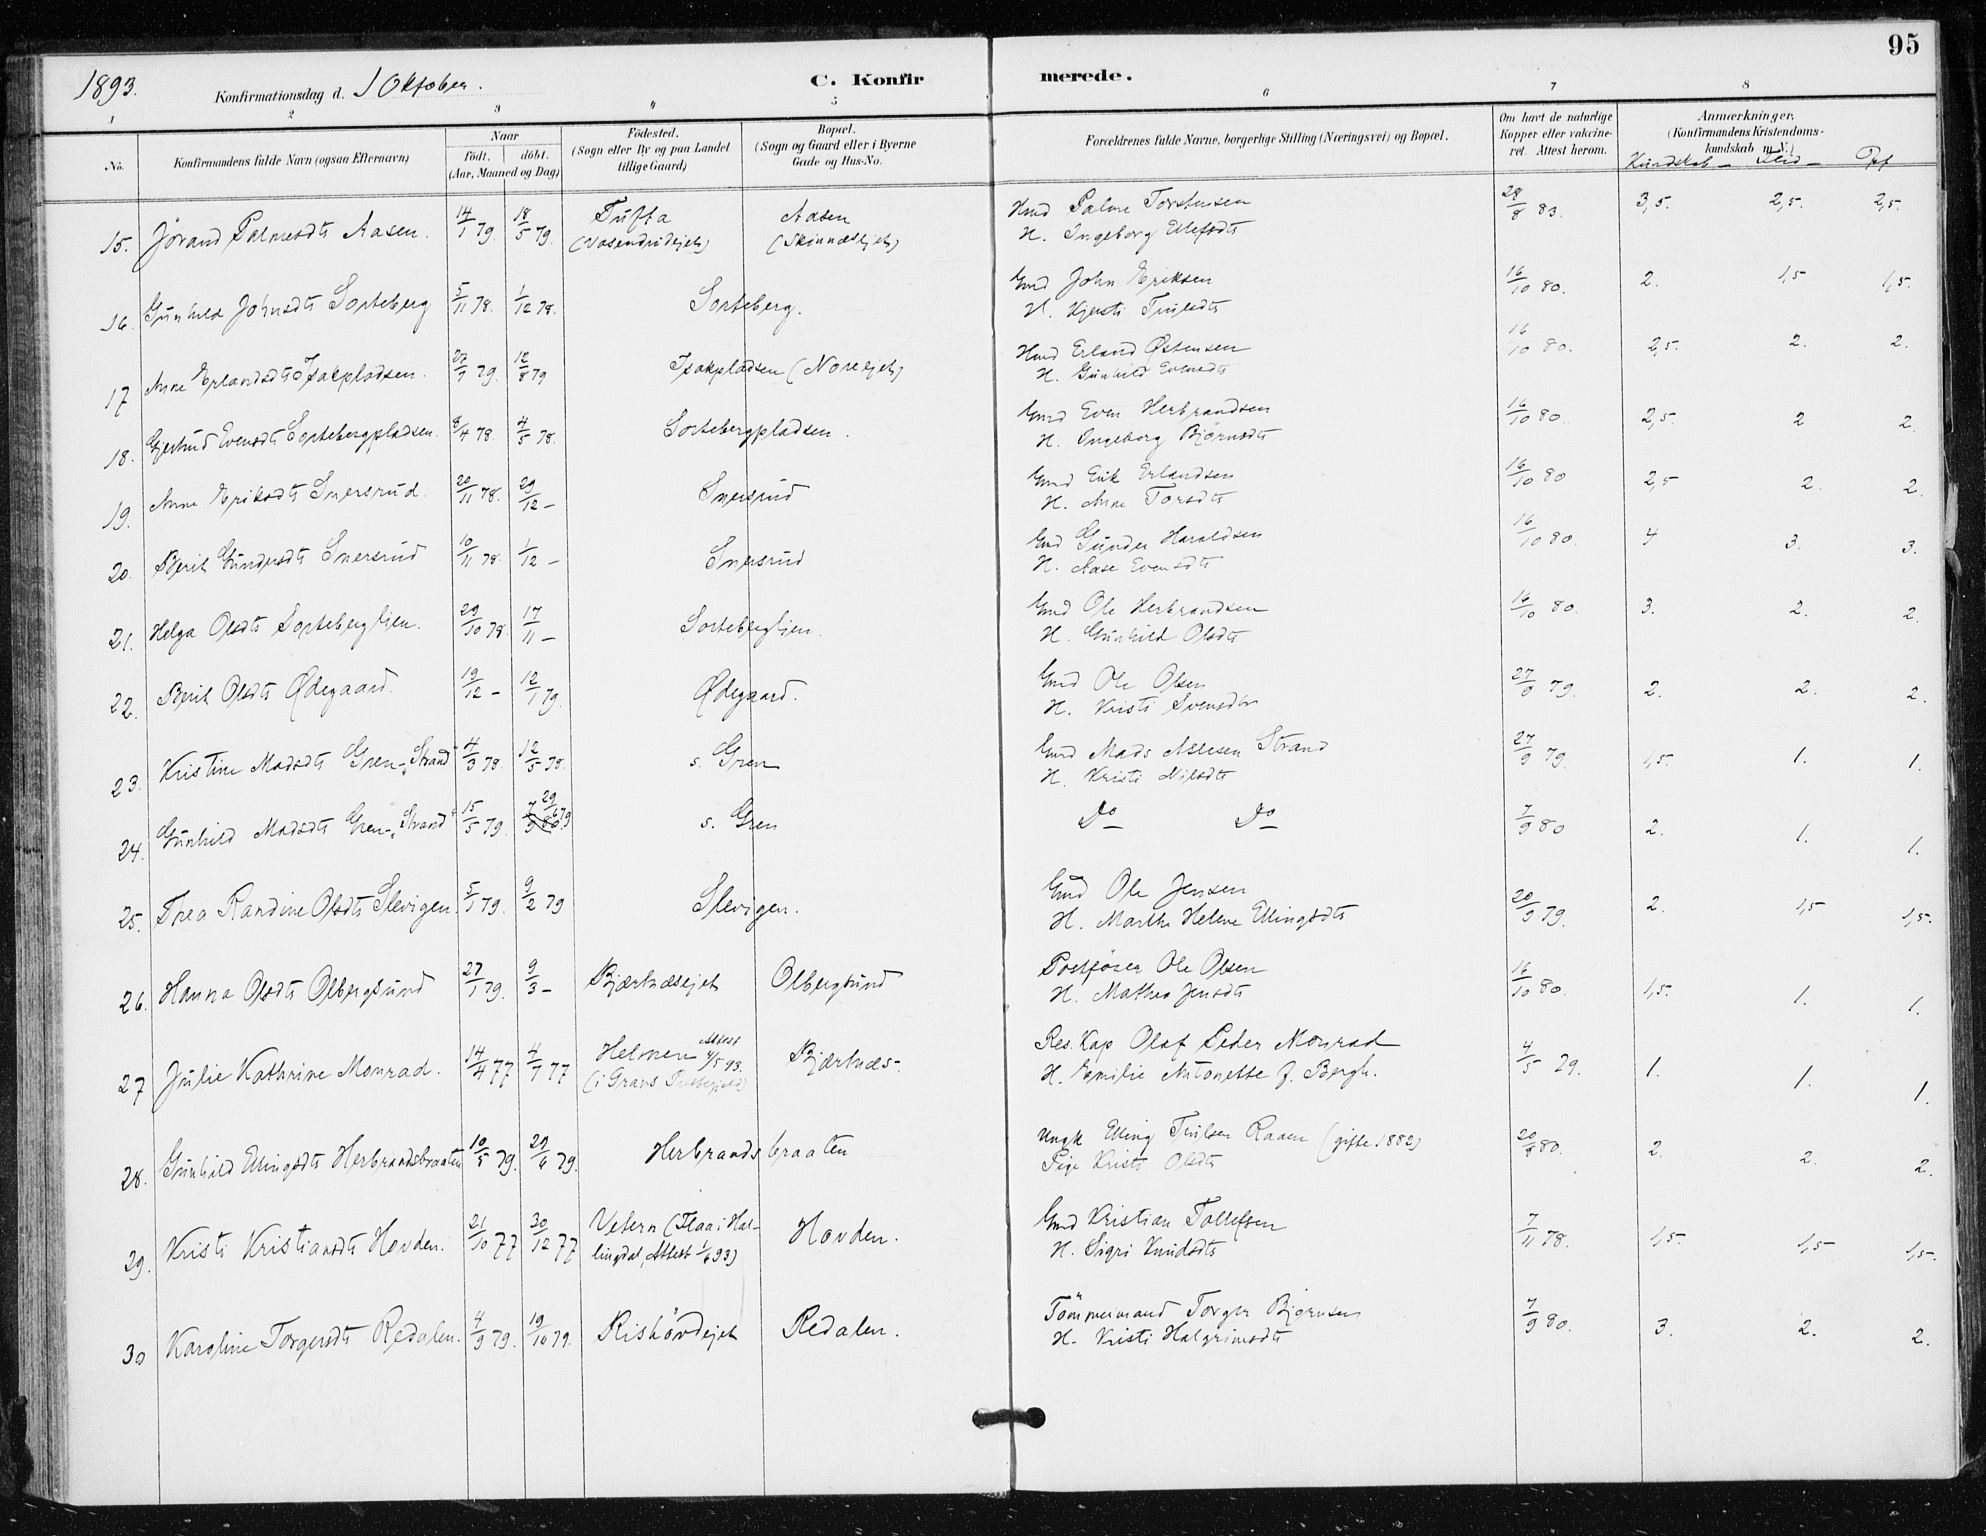 95
1893.
Konfirmationsdag d. 1 Oktober.
C. Konfirmerede.
1 2 3 4 5 6 7 8
No.
Konfirmandens fulde Navn (ogsaa Efternavn)
Naar
födt. döbt.
(Aar, Maaned og Dag)
Födested.
(Sogn eller By og paa Landet
tillige Gaard)
Bopæl.
(Sogn og Gaard eller i Byerne
Gade og Hus-No.
Forældrenes fulde Navne, borgerlige Stilling (Næringsvei) og Bopæl.
Om havt de naturlige
Kopper eller vakcine-
ret. Attest herom.
Anmærkninger.
(Konfirmandens Kristendoms-
kundskab m. V.)
Kundskab – Flid –
15. Jørand Palmesdtr Aasen. 14/1 79. 18/5 79. Tufta Aasen Hmd Palme Torstensen 28/8 83. 3,5. 2,5. 2,5.
H. Ingeborg Ellefsdtr
16. Gunhild Johnsdtr Sorteberg 5/11 78. 1/12 78. Sorteberg. Gmd John Eriksen 16/10 80. 2. 1,5 1,5.
H. Kjersti Trulsdtr
17 Anne Erlandsdtr Isakpladsen. 27/7 79. 12/8 79 Isakpladsen (Noreejet) Hmd Erland Østensen 16/10 80. 2,5. 2. 2.
H. Gunhild Evensdtr
18. Gjertrud Evensdtr Sortebergpladsen. 8/4 78. 4/5 78. Sortebergpladsen. Gmd Even Herbrandsen 16/10 80. 2,5. 2 2.
H. Ingeborg Björnsdtr
19. Anne Eriksdtr Smersrud. 20/11 78. 29/12 – Smersrud Gmd Erik Erlandsen 16/10 80 2,5 2. 2.
H. Anne Torsdtr
20. Berit Gundersdtr Smersrud 10/11 78. 1/12 – Smersrud Gmd Gunder Haraldsen 16/10 80. 4 3. 3.
H. Aase Evensdtr
21. Helga Olsdtr Sortebergljen. 29/10 78. 17/11 – Sortebergljen. Gmd Ole Herbrandsen 16/10 80. 3. 2. 2.
H. Gunhild Olsdtr
22. Berit Olsdtr Ødegaard. 19/12 – 12/1 79. Ødegaard. Gmd Ole Olsen 27/9 79. 2. 2. 2.
H. Kristi Svensdtr
23. Kristine Madsdtr Gren-"Strand" 4/3 78. 12/5 78. s. Gren Gmd Mads Strand 27/9 79. 1,5. 1. 1.
H. Kristi Nilsdtr
24. Gunhild Madsdtr Gren-"Strand" 15/5 79. 29/6 79 s. Gren Do Do 7/9 80 2. 1. 1.
25. Thea Randine Olsdtr Slevigen. 5/1 79. 9/2 79 Slevigen. Gmd Ole Jensen 20/9 79. 2. 1,5 1,5.
H. Marthe Helene Ellingsdtr
26. Hanna Olsdtr Olbergsund 27/1 79. 9/3 – Bjærknæsejet Olbergsund Postfører Ole Olsen 16/10 80. 1,5. 1. 1.
H. Mathea Jensdtr
27 Julie Kathrine Monrad. 14/4 77 4/7 77 Helmen Attest 4/5 93. Bjærknæs- Res. Kap Olaf Peder Monrad 4/5 79. 1. 1. 1.
(i Grans Præstegjeld) H. Emilie Antonette f. Bergh.
28. Gunhild Ellingsdtr Herbrandsbraaten 10/5 79. 29/6 79. Herbrandsbraaten Ungk Elling Trulsen Raaen (gifte 1882) 20/8 80. 2. 2. 2.
Pige Kristi Olsdtr
29. Kristi Kristiansdtr Hovden. 21/10 77 30/12 77 Vetern (Flaa i Hal- Hovden. Gmd Kristian Tollefsen 7/11 78. 1,5. 1,5 1,5.
lingdal, Attest 1/6 93) H. Sigri Knudsdtr
30 Karoline Torgersdtr Redalen. 4/9 79. 19/10 79. Rishövdejet Redalen. Tömmermand Torger Bjørnsen 7/9 80. 3. 2. 2.
H. Kristi Halgrimsdtr